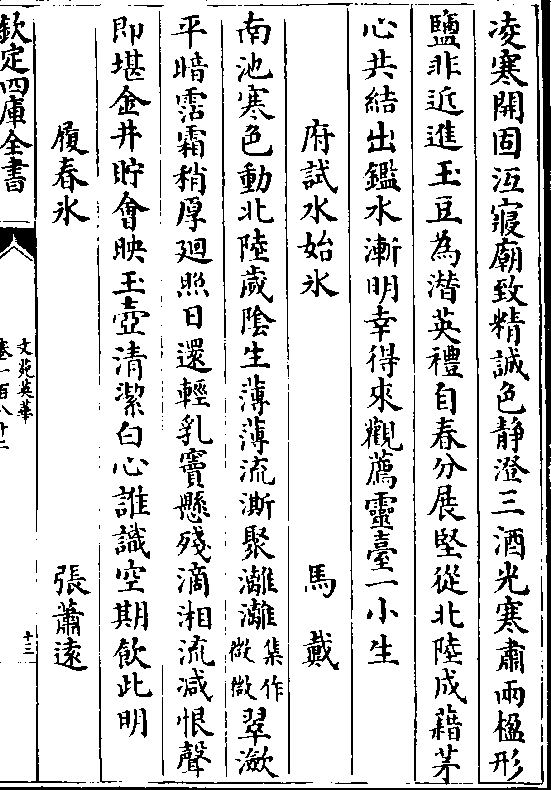 凌寒開固沍寢廟致精誠色静澄三酒光寒肅兩楹形
鹽非近進玉豆為潜英禮自春分展堅從北陸成藉茅
心共結出鑑水漸明幸得來觀薦靈臺一小生
府試水始氷 馬戴
南池寒色動北陸歲陰生薄薄流澌聚灕灕集作微微翠瀲
平暗霑霜稍厚廻照日還輕乳竇懸殘滴湘流减恨聲
即堪金井貯會映玉壺清潔白心誰識空期飲此明
履春氷 張蕭遠
欽定四庫全書
文苑英華
卷一百八十二
十三